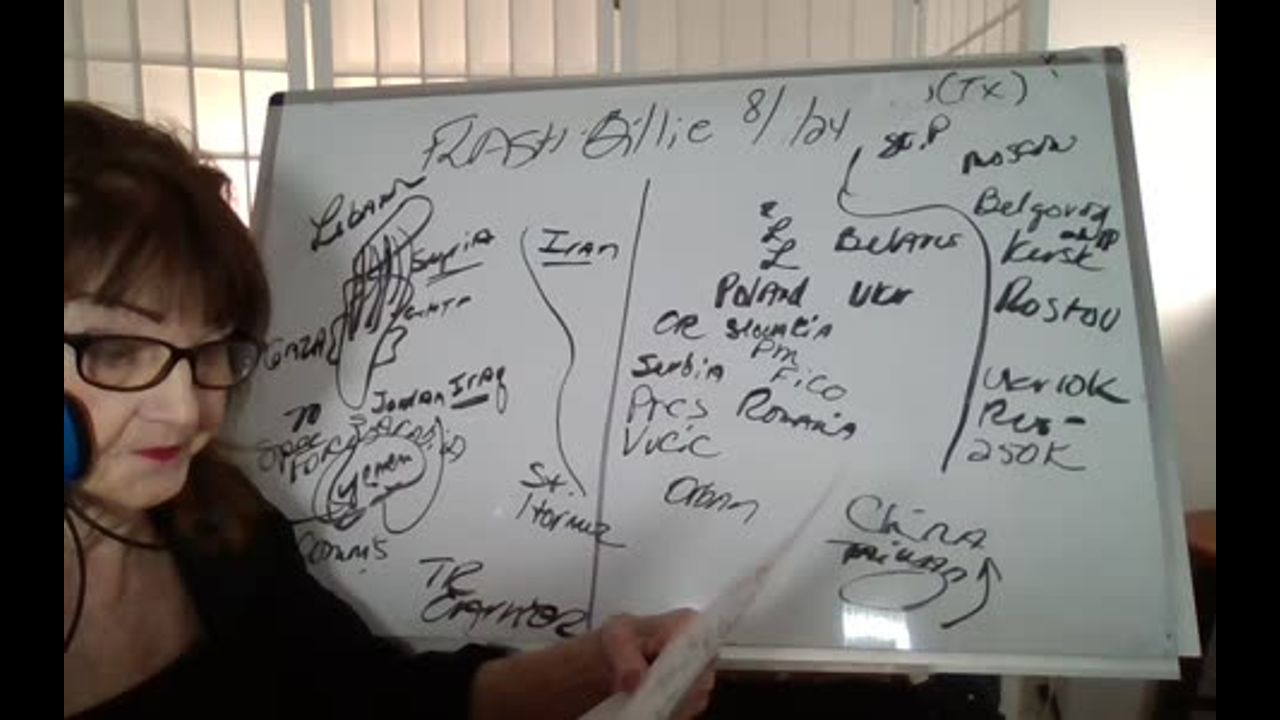 (TX)
FLASH Billie 8/ /24
St. P
Moscow
Leban
Belgorod
Syria
Iran
L
L
Belarus
Kursk
Poland UKr
Rostov
GAZA
CR Slovakia
PM
Fico
Serbia
Jordan Iraq
Ukr 10K
Pres Romania
Rus -
Vucic
250K
Spec
Forc
Yemen
St.
Hormuz
Orban
China
Taiwan
Comms
TR
Carrier